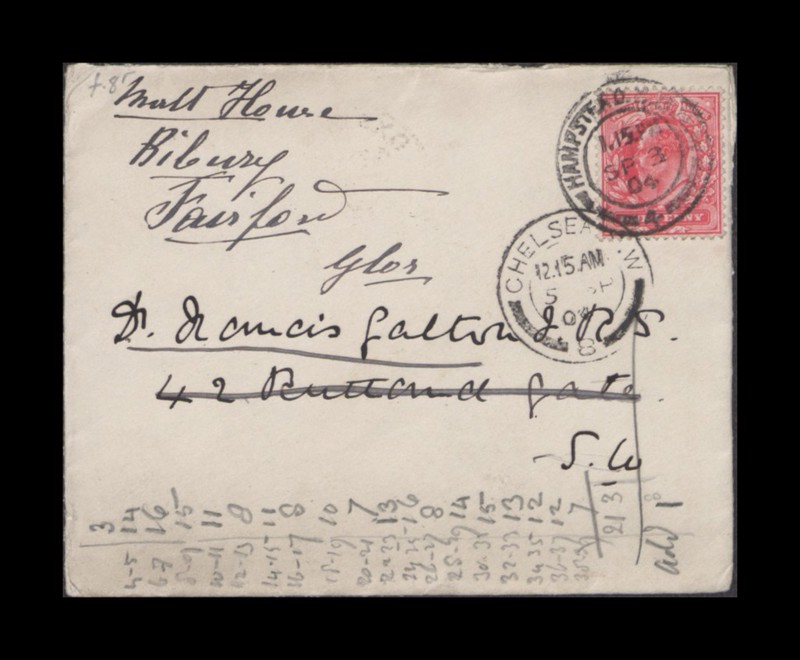 f.85
Malt House
Bibury
Fairford
Glos
HAMPSTEAD
1.15 P
SP 3
04
4
CHELSEA S.W
12.15 AM
5 SP
04
8
Dr. Francis Galton F.R.S.
42 Rutland Gate.
S.W
3
4-5 14
6-7 16
8-9 15
10-11 11
12-13 8
14-15 11
16-17 8
18-19 10
20-21 7
22-23 13
24-25 16
26-27 8
28-29 14
30-31 15
32-33 13
34-35 12
36-37 12
38-39 7
213
add 1